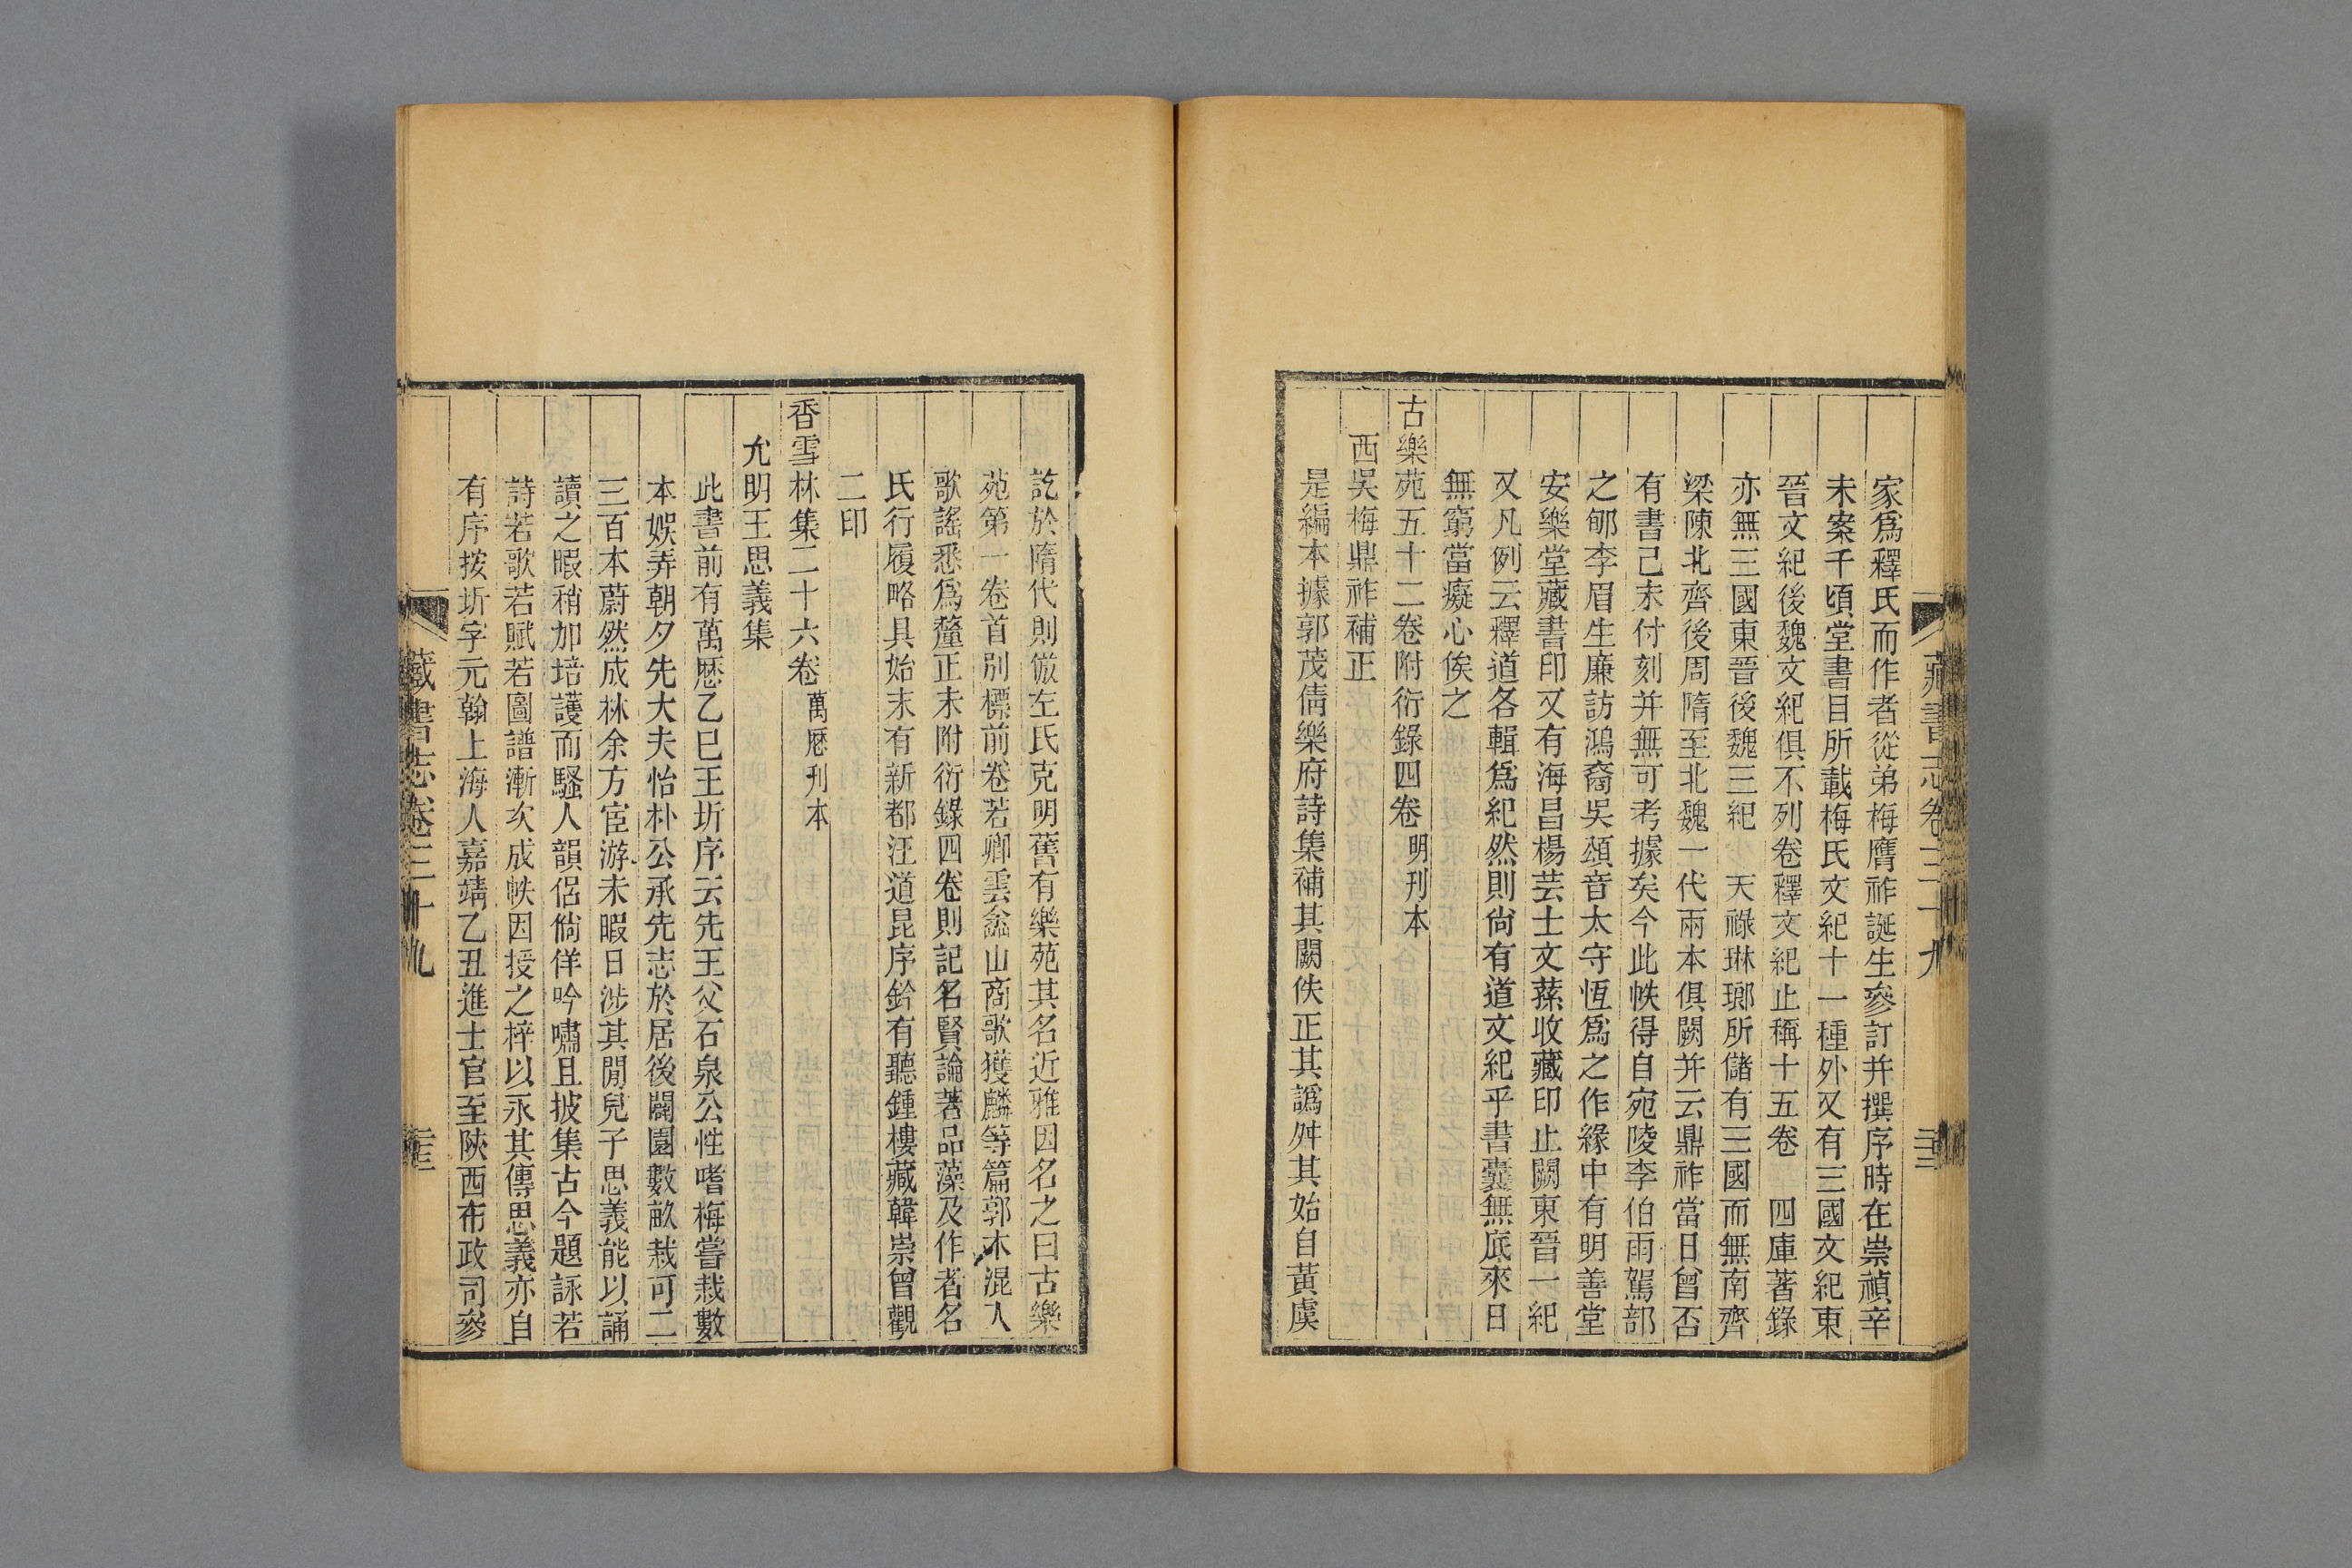 藏書志卷三十九
家爲釋氏而作者從弟梅膺祚誕生參訂并撰序時在崇禎辛
未案千頃堂書目所載梅氏文紀十一種外又有三國文紀東
晉文紀後魏文紀俱不列卷釋文紀止稱十五卷 四庫著錄
亦無三國東晉後魏三紀 天祿琳瑯所儲有三國而無南齊
梁陳北齊後周隋至北魏一代兩本俱闕并云鼎祚當日曾否
有書已未付刻并無可考據矣今此帙得自宛陵李伯雨駕部
之郇李眉生廉訪鴻裔吳頌音太守恆爲之作緣中有明善堂
安樂堂藏書印又有海昌楊芸士文蓀收藏印止闕東晉一紀
又凡例云釋道各輯爲紀然則尙有道文紀乎書囊無底來日
無窮當癡心俟之
古樂苑五十二卷附衍錄四卷 明刊本
西吳梅鼎祚補正
是編本據郭茂倩樂府詩集補其闕佚正其譌舛其始自黃虞
訖於隋代則倣左氏克明舊有樂苑其名近雅因名之曰古樂
苑第一卷首別標前卷若卿雲龡山商歌獲麟等篇郭本混入
歌謠悉爲釐正末附衍錄四卷則記名賢論著品藻及作者名
氏行履略具始末有新都汪道昆序鈐有聽鍾樓藏韓崇曾觀
二印
香雪林集二十六卷 萬厯刊本
允明王思義集
此書前有萬厯乙巳王圻序云先王父石泉公性嗜梅嘗栽數
本娛弄朝夕先大夫怡朴公承先志於居後闢園數畝栽可二
三百本蔚然成林余方宦游未暇日涉其閒兒子思義能以誦
讀之暇稍加培護而騷人韻侶倘佯吟嘯且披集古今題詠若
詩若歌若賦若圖譜漸次成帙因授之梓以永其傳思義亦自
有序按圻字元翰上海人嘉靖乙丑進士官至陝西布政司參
藏書志卷三十九